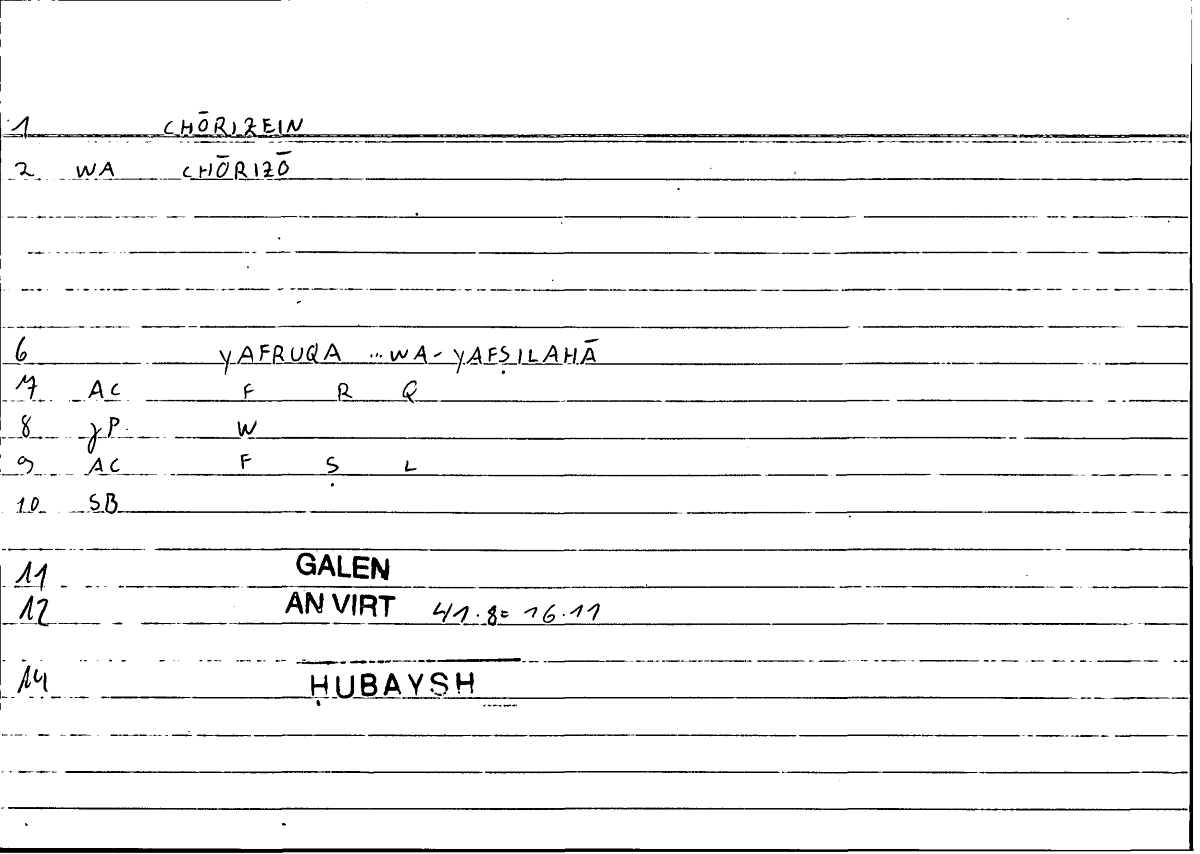 1 CHŌRIZEIN
2 WA CHŌRIZŌ
6 YAFRUQA ... WA-YAFṢILAHĀ
7 AC F R Q
8 γP W
9 AC F Ṣ L
10 SB
11 GALEN
12 AN VIRT 41.8= 16.11
14 ḤUBAYSH